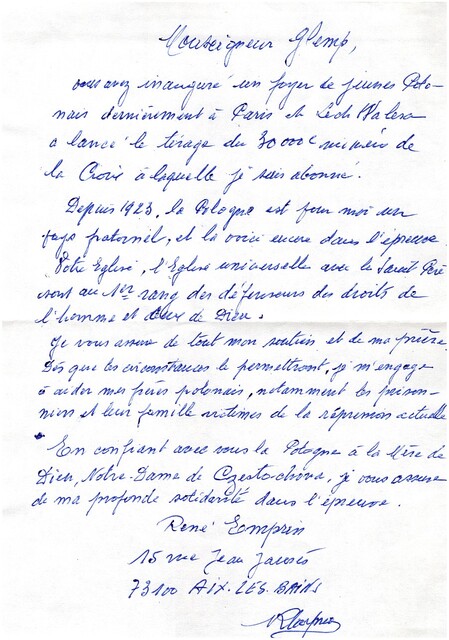 Monseigneur Glemp,
vous avez inauguré un foyer de jeunes Polo-
nais dernièrement à Paris et Lech Walesa
a lancé le tirage du 30 000e numéro de
la Croix à laquelle je suis abonné.
Depuis 1923, la Pologne est pour moi un
pays fraternel, et la voici encore dans l'épreuve
Votre Eglise, l'Eglise universelle avec le Saint Père
sont au 1er rang des défenseurs des droits de
l'homme et ceux de Dieu.
Je vous assure de tout mon soutien et de ma prière.
Dès que les circonstances le permettront, je m'engage
à aider mes frères polonais, notamment les prison-
niers et leur famille victimes de la répression actuelle
En confiant avec vous la Pologne à la Mère de
Dieu, Notre-Dame de Czesto-chova, je vous assure
de ma profonde solidarité dans l'épreuve.
René
15 rue Jean Jaurès
73100 AIX-LES-BAINS